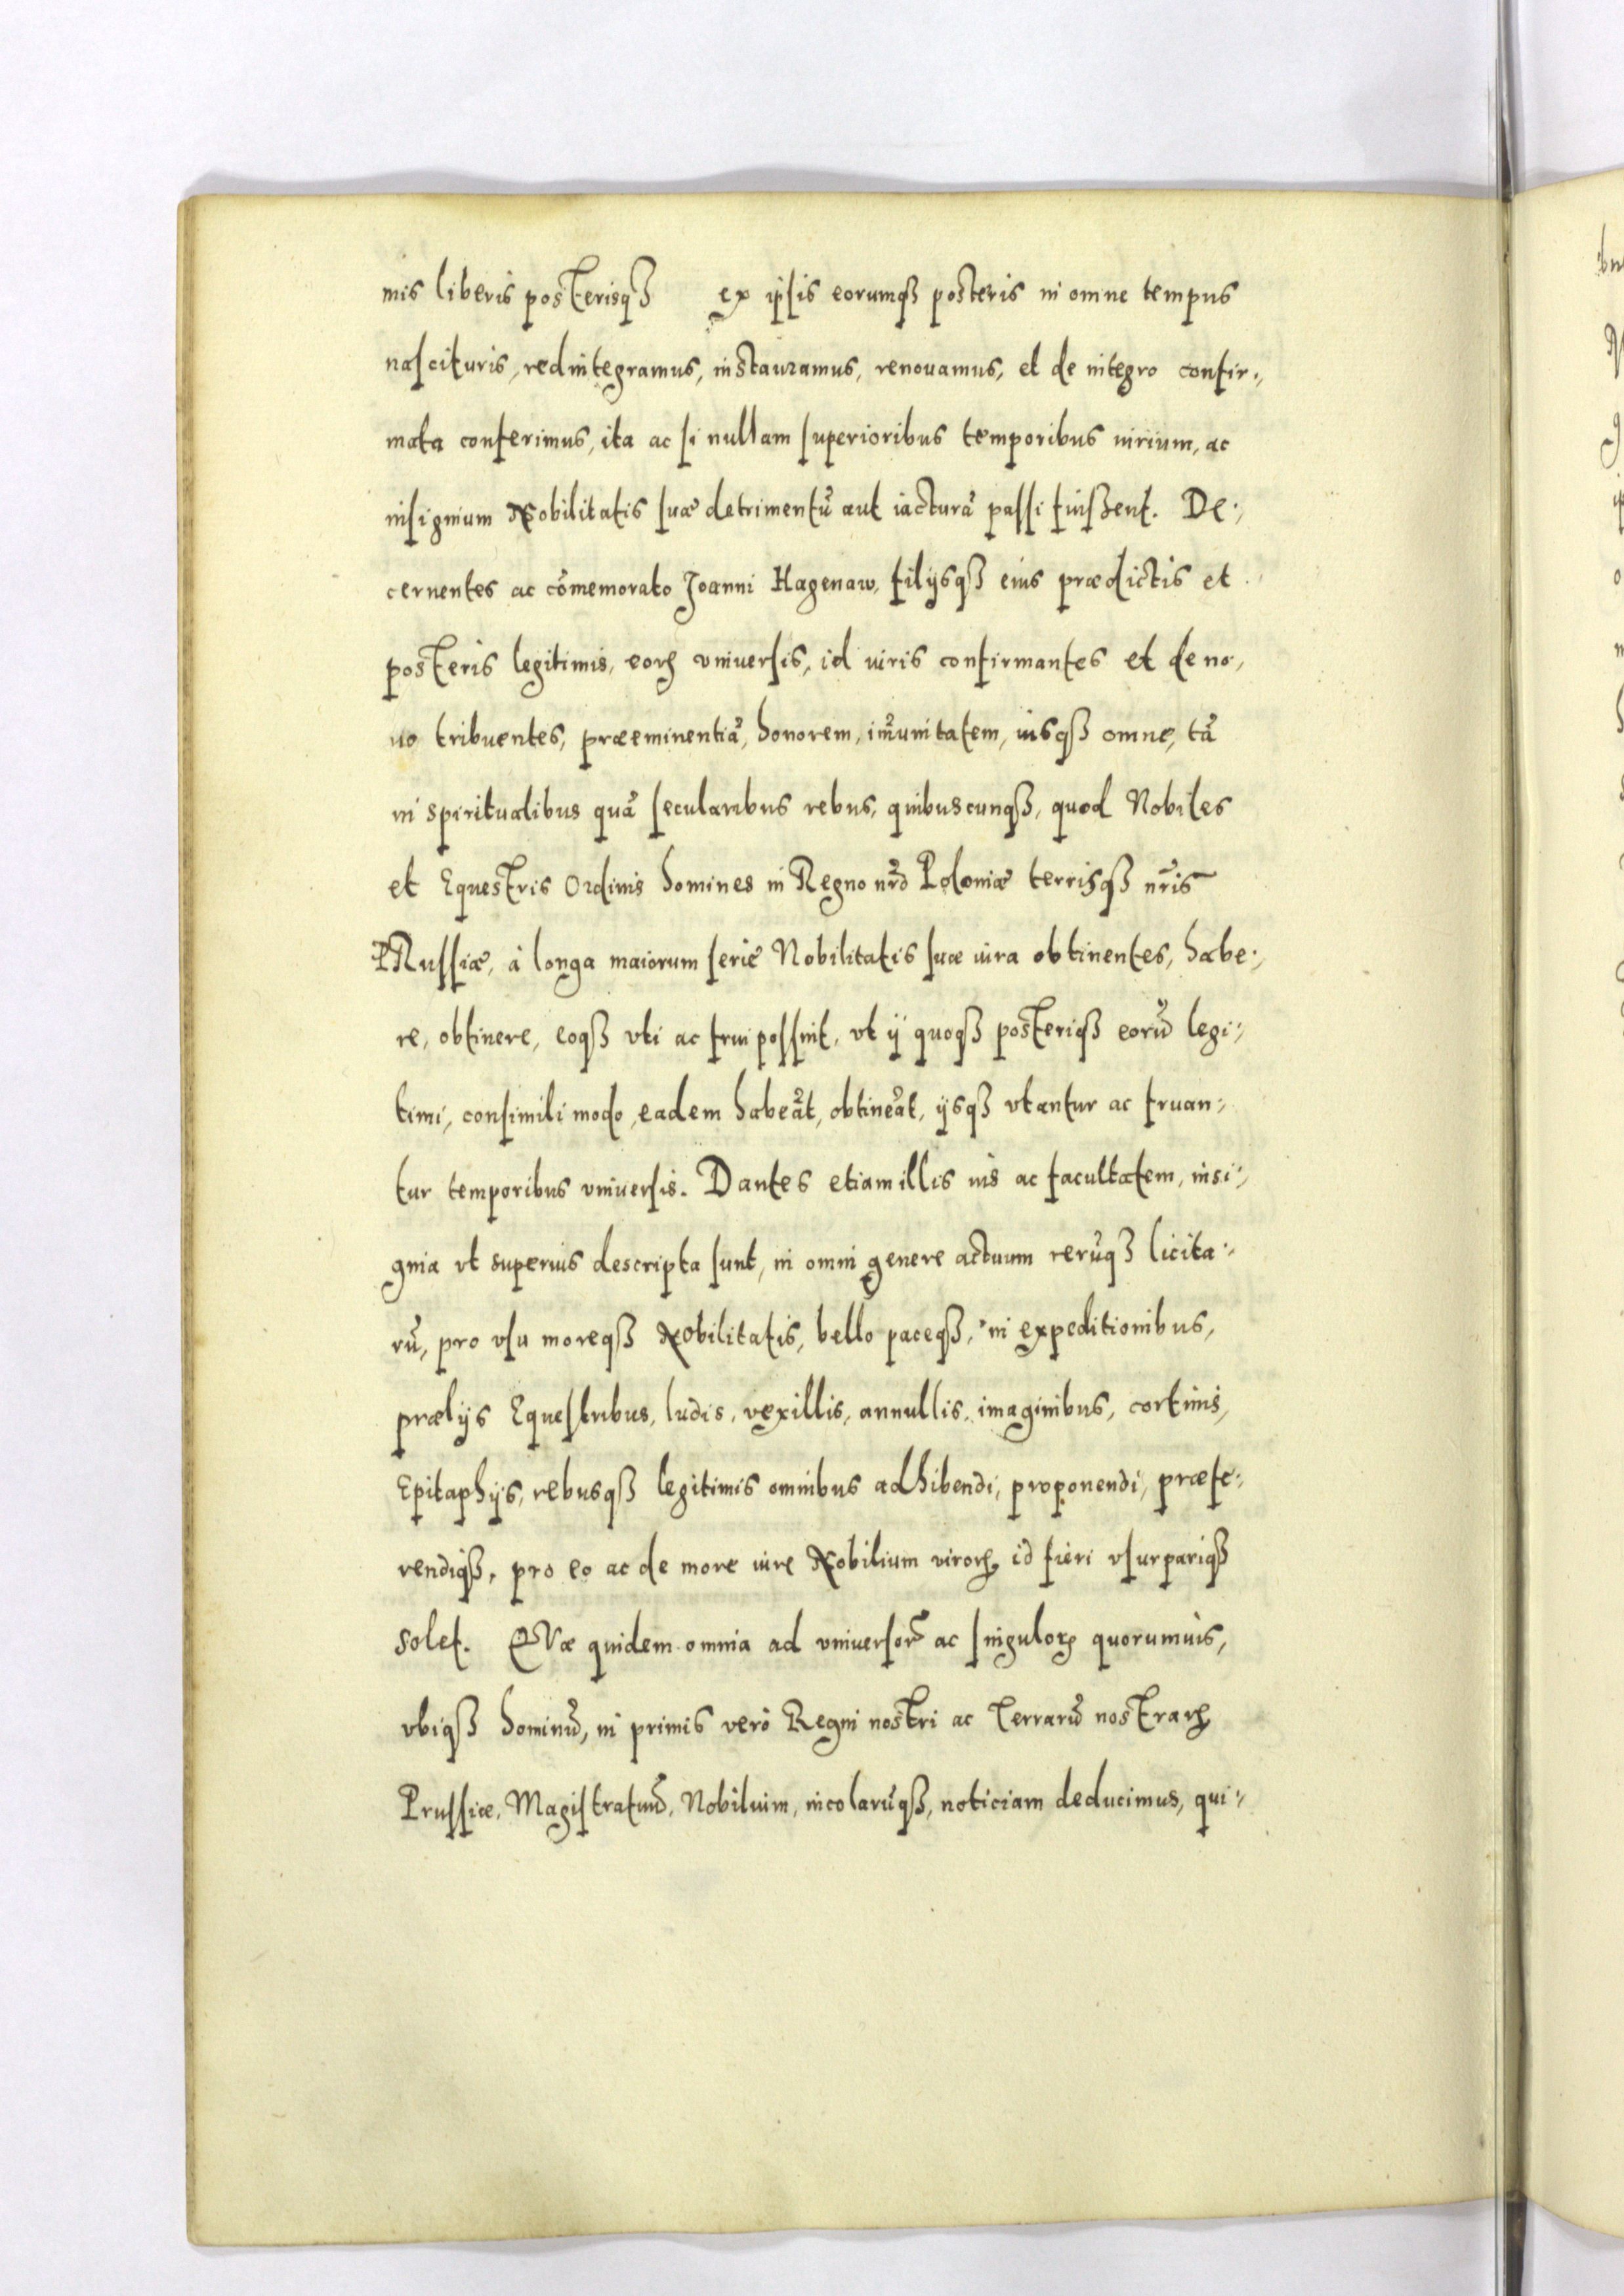 mis liberis posterisqꝫ ex ipſis eorumqꝫ posteris in omne tempus
naſcituris, redintegramus, instauramus, renouamus, et de integro confir:,
mata conferimus, ita ac ſi nullam ſuperioribus temporibus iurium, ac
inſignium Nobilitatis ſuæ detrimentũ aut iacturã paſſi fuiſſent. De:,
cernentes ac cõmemorato Joanni Hagenaw, filijsqꝫ eius prædictis et
posteris legitimis, eoꝝ vniuerſis, id iuris confirmantes et de no,
uo tribuentes, præeminentiã, honorem, im̃unitatem, iusqꝫ omne, tã
in spiritualibus quã ſecularibus rebus, quibuscunqꝫ, quod Nobiles
et Equestris Ordinis homines in Regno nr̃o Poloniæ terrisqꝫ nr̃is
PRuſſiæ, à longa maiorum ſeriè Nobilitatis ſuæ iura obtinentes, habe:,
re, obtinere, eoqꝫ vti ac frui poſſint, vt ij quoqꝫ posteriqꝫ eorũ legi:,
timi, conſimili modo, eadem habeãt, obtineãt, ijsqꝫ vtantur ac fruan:,
tur temporibus vniuerſis. Dantes etiam illis ius ac facultatem, insi:,
gnia vt superius descripta ſunt, in omni genere actuum rerũqꝫ licita:,
rũ, pro vſu moreqꝫ Nobilitatis, bello paceqꝫ, in expeditionibus,
prælijs Equeſtribus, ludis, vexillis, annullis, imaginibus, cortinis,
Epitaphijs, rebusqꝫ legitimis omnibus adhibendi, proponendi, præfe:,
rendiqꝫ, pro eo ac de more iure Nobilium viroꝝ id fieri vſurpariqꝫ
solet. QVæ quidem omnia ad vniuerſor̃ ac ſinguloꝝ quorumuis,
vbiqꝫ hominũ, in primis verò Regni nostri ac Terrarũ nostraꝝ
Pruſſiæ, Magiſtratuũ, Nobilium, incolarũqꝫ, noticiam deducimus, qui:,